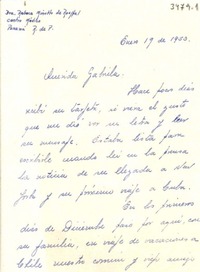 3479.1
Dra. Palma
Panamá R. de P.
Enero 19 de 1953.
Querida Gabriela:
Hace pocos días
recibí su tarjeta, ni viera el gusto
que me dió ver su letra y leer
su mensaje. Estaba lista para
escribirle cuando leí en la prensa
la noticia de su llegada a New
York y su próximo viaje a Cuba.
En los primeros
días de Diciembre pasó por aquí, con
su familia, en viaje de vacaciones a
Chile nuestro común y viejo amigo